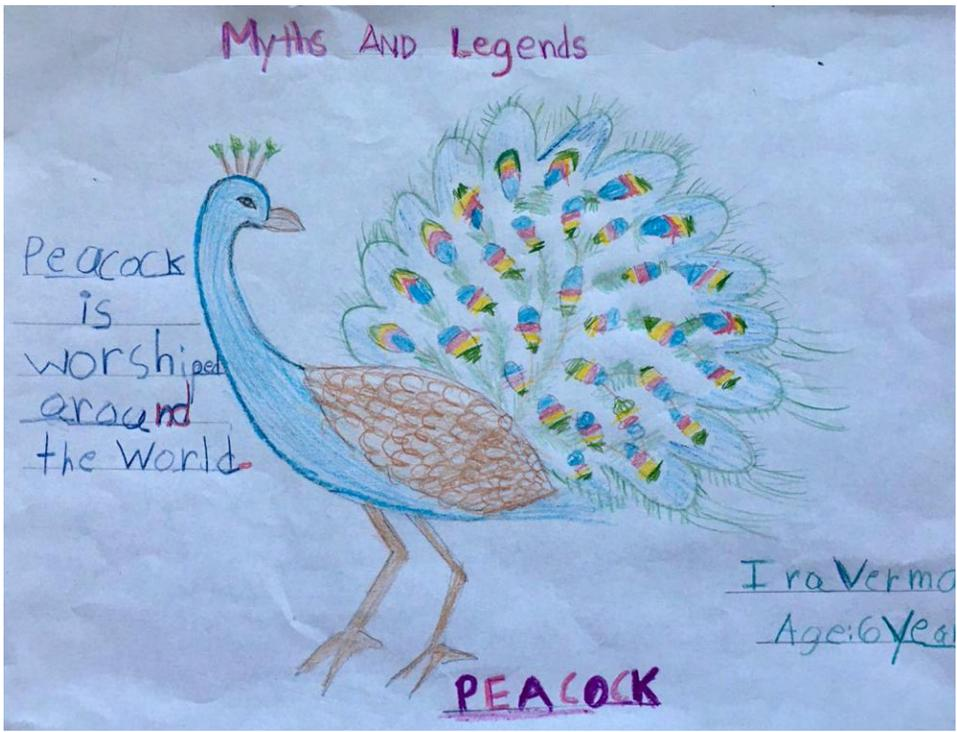 Myths AND Legends
Peacock
is
worshiped
around
the World.
Ira Verma
Age:6 Year
PEACOCK